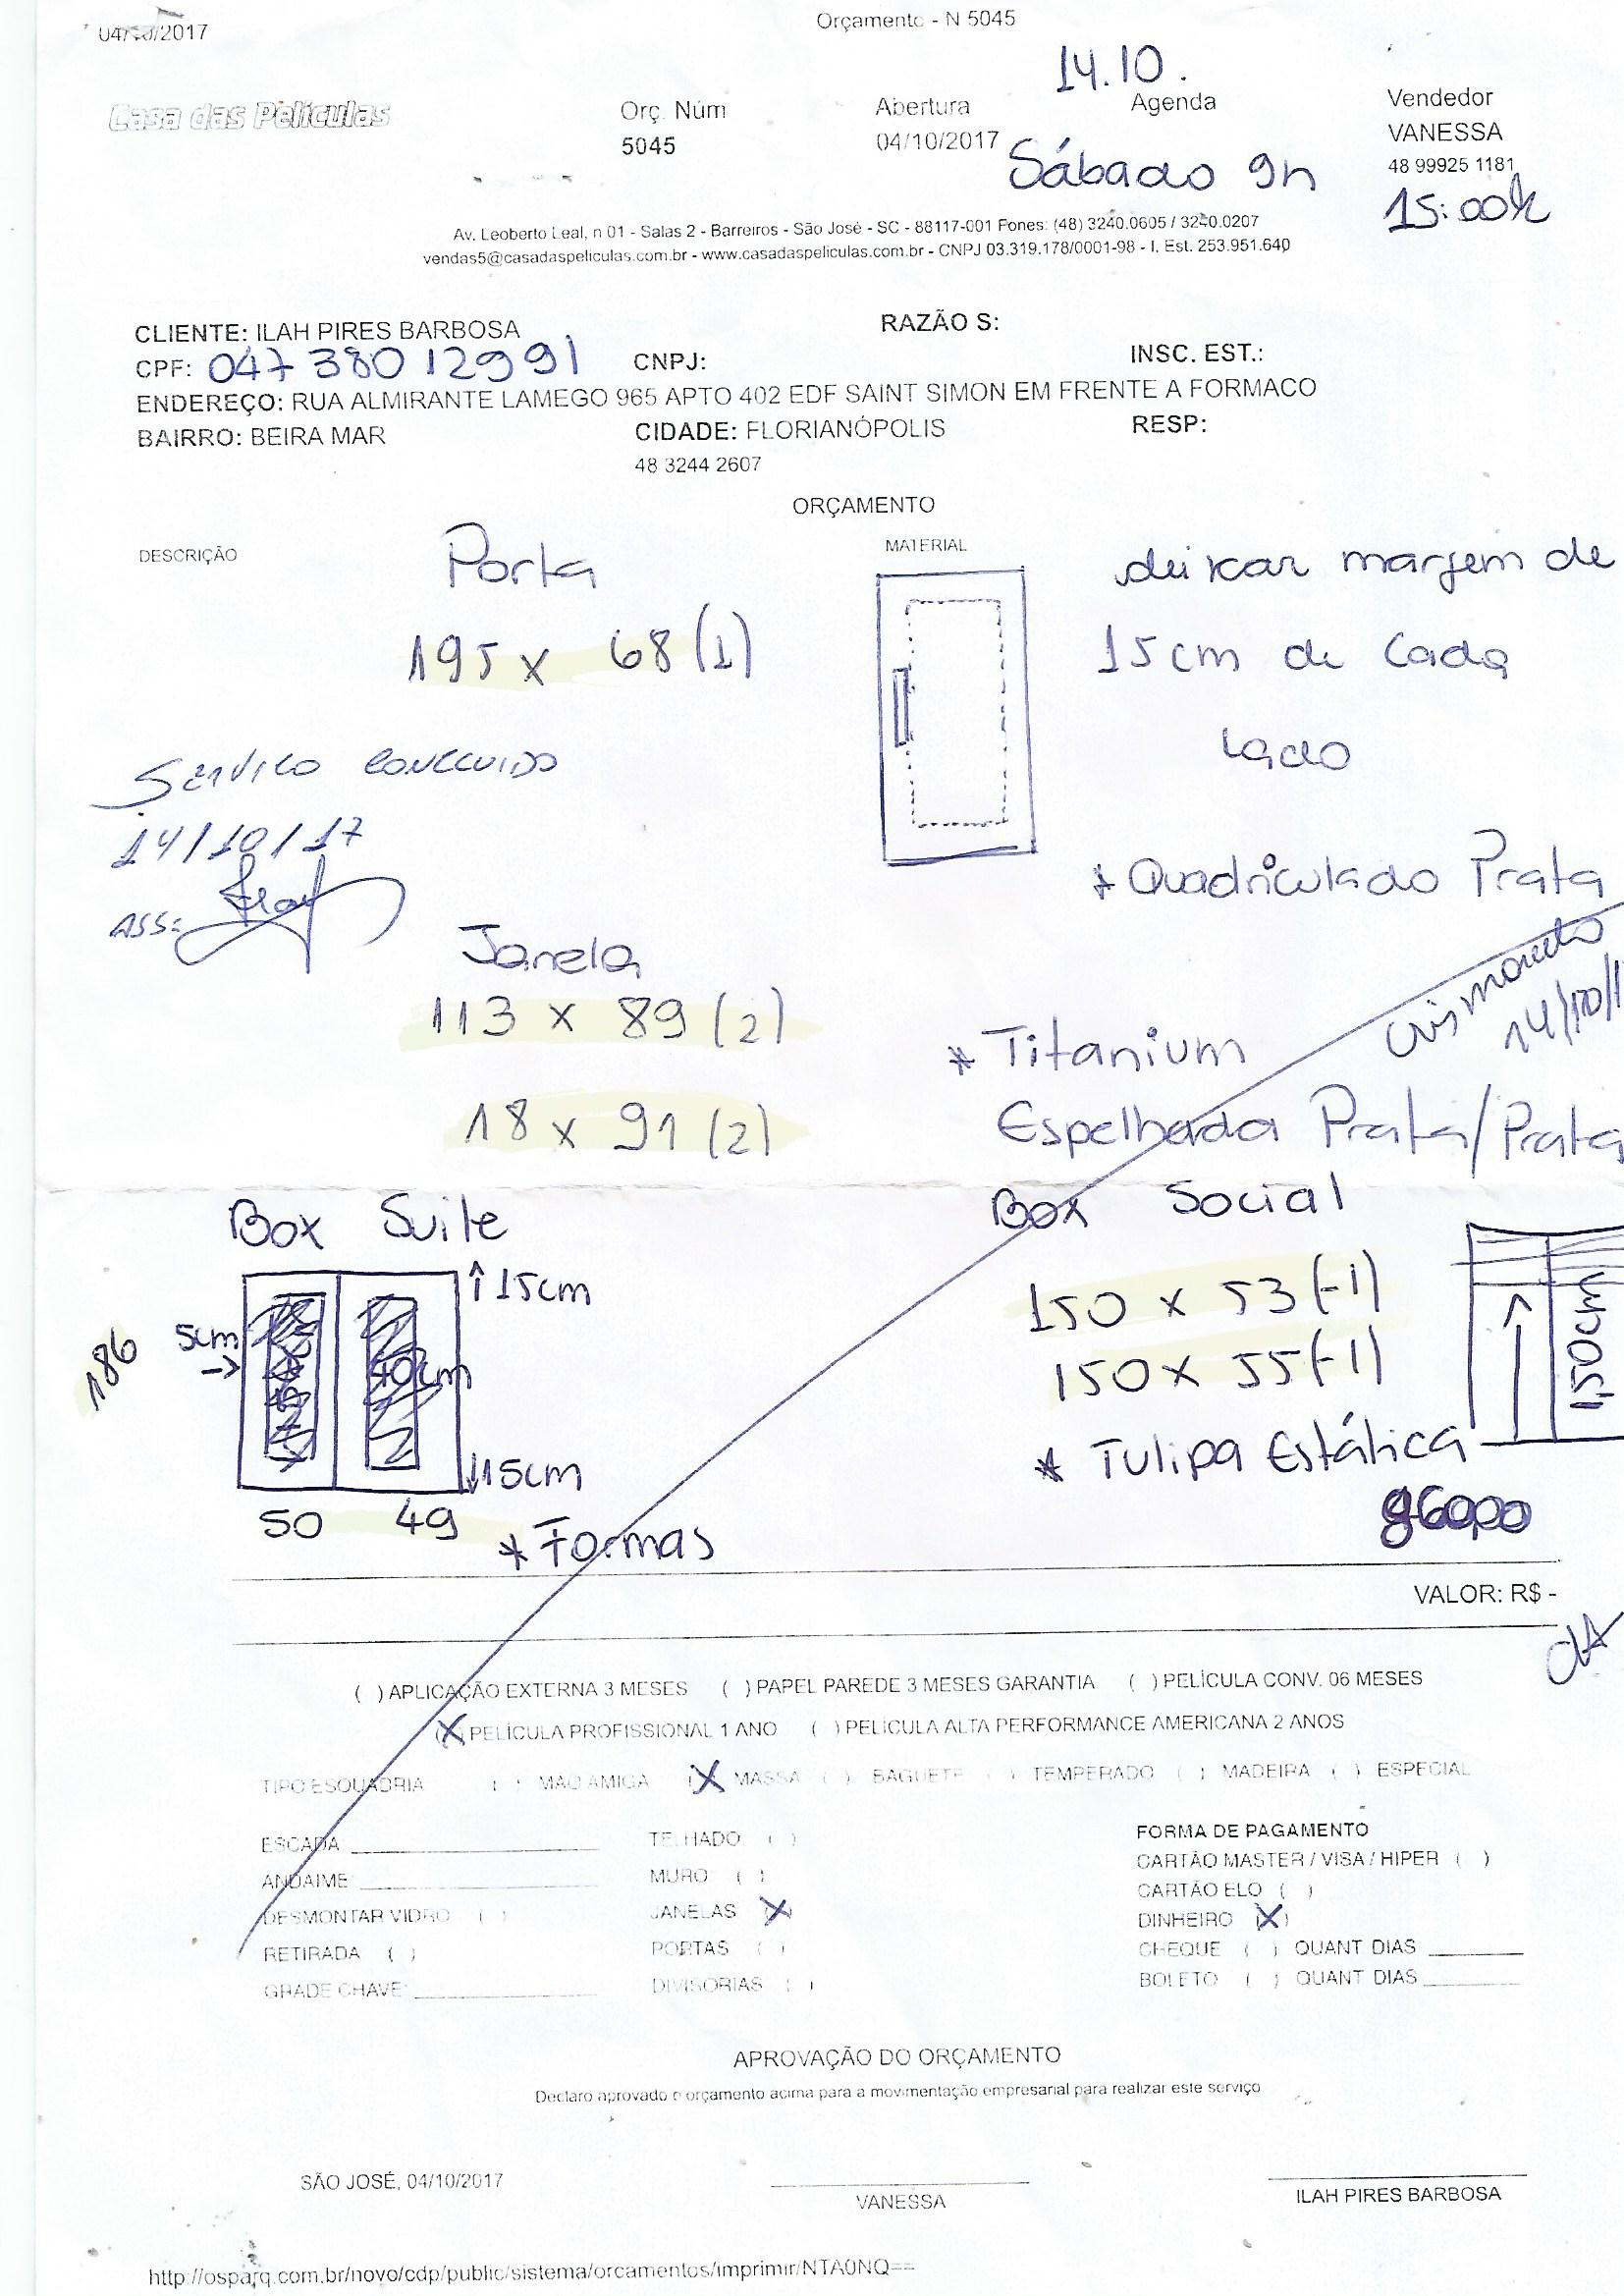 04/10/2017
Orçamento - N 5045
14.10.
Casa das Películas
Orç. Núm
5045
Abertura
04/10/2017
Agenda
Sábado 9h
Vendedor
VANESSA
48 99925 1181
15:00h
Av. Leoberto Leal, n 01 - Salas 2 - Barreiros - São José - SC - 88117-001 Fones: (48) 3240.0605 / 3240.0207
vendas5@casadaspeliculas.com.br - www.casadaspeliculas.com.br - CNPJ 03.319.178/0001-98 - I. Est. 253.951.640
CLIENTE: ILAH PIRES BARBOSA RAZÃO S:
CPF: 047 380 129 91 CNPJ: INSC. EST.:
ENDEREÇO: RUA ALMIRANTE LAMEGO 965 APTO 402 EDF SAINT SIMON EM FRENTE A FORMACO
BAIRRO: BEIRA MAR CIDADE: FLORIANÓPOLIS RESP:
48 3244 2607
ORÇAMENTO
DESCRIÇÃO MATERIAL
Porta
195 x 68 (1)
deixar margem de
15cm de cada
lado
Serviço concluido
14/10/17
ASS:
* Quadriculado Prata
Janela
113 x 89 (2)
18 x 91 (2)
14/10/1
* Titanium
Espelhada Prata/Prata
Box Suite
15cm
5cm
186
40cm
15cm
50 49
* Formas
Box Social
150 x 53 (-1)
150 x 55 (-1)
1,50cm
* Tulipa Estática
960,00
VALOR: R$ -
( ) APLICAÇÃO EXTERNA 3 MESES ( ) PAPEL PAREDE 3 MESES GARANTIA ( ) PELÍCULA CONV. 06 MESES
(X) PELÍCULA PROFISSIONAL 1 ANO ( ) PELÍCULA ALTA PERFORMANCE AMERICANA 2 ANOS
TIPO ESQUADRIA ( ) MÃO AMIGA (X) MASSA ( ) BAGUETE ( ) TEMPERADO ( ) MADEIRA ( ) ESPECIAL
ESCADA TELHADO ( ) FORMA DE PAGAMENTO
ANDAIME MURO ( ) CARTÃO MASTER / VISA / HIPER ( )
DESMONTAR VIDRO ( ) JANELAS (X) CARTÃO ELO ( )
RETIRADA ( ) PORTAS ( ) DINHEIRO (X)
GRADE CHAVE DIVISORIAS ( ) CHEQUE ( ) QUANT DIAS
BOLETO ( ) QUANT DIAS
APROVAÇÃO DO ORÇAMENTO
Declaro aprovado o orçamento acima para a movimentação empresarial para realizar este serviço
SÃO JOSÉ, 04/10/2017
VANESSA
ILAH PIRES BARBOSA
http://osparq.com.br/novo/cdp/public/sistema/orcamentos/imprimir/NTA0NQ==